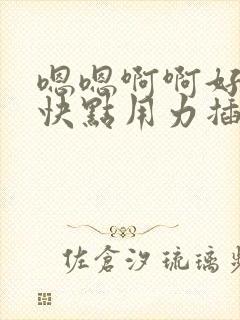 嗯嗯啊啊好
快點用力插
佐倉汐琉璃